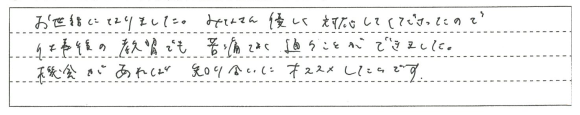 お世話になりました。みなさん優しく対応してくださったので
仕事後の教習でも苦痛なく通うことができました。
機会があれば知り合いにオススメしたいです。